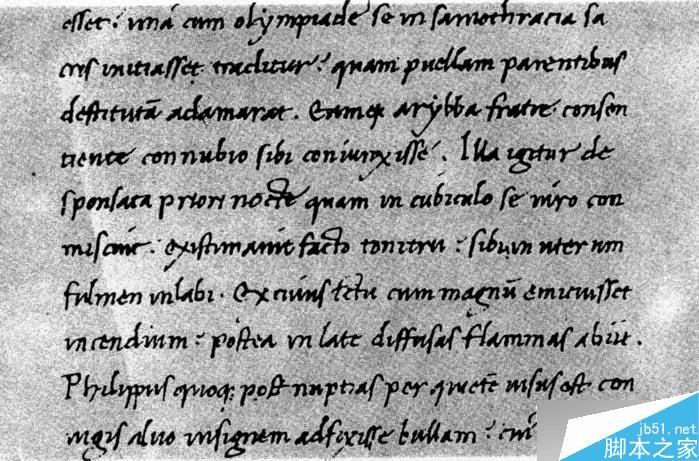 esset: una cum olympiade se in samothracia sa
cris initiasset traditur: quam puellam parentibus
destitutā adamarat. Eamq arybba fratre consen
tiente connubio sibi coniunxisse. Illa igitur de
sponsata priori nocte quam in cubiculo se uiro con
miscuit: existimauit facto tonitru: sibi in uterum
fulmen inlabi. Ex cuius ictu cum magnū emicuisset
incendium: postea in late diffusas flammas abiit.
Philippus quoq; post nuptias per quietē uisus est con
iugis aluo insignem adfixisse bullam: cui
jb51.net
脚本之家